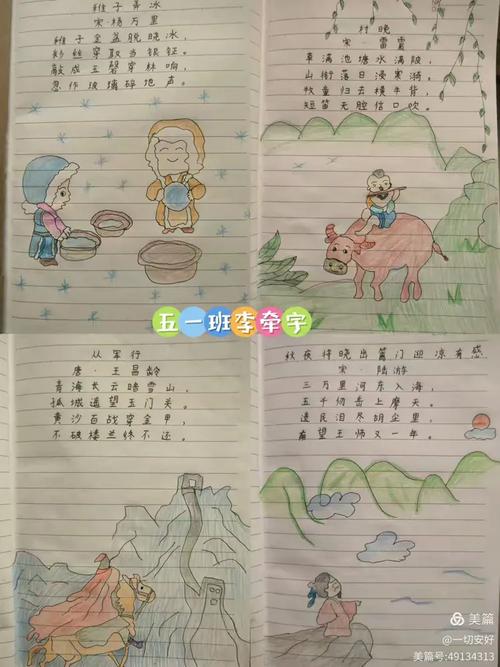 稚子弄冰
宋·杨万里
稚子金盆脱晓冰，
彩丝穿取当银钲。
敲成玉磬穿林响，
忽作玻璃碎地声。
村晚
宋·雷震
草满池塘水满陂，
山衔落日浸寒漪。
牧童归去横牛背，
短笛无腔信口吹。
五一班李牵宇
从军行
唐·王昌龄
青海长云暗雪山，
孤城遥望玉门关。
黄沙百战穿金甲，
不破楼兰终不还。
秋夜将晓出篱门迎凉有感
宋·陆游
三万里河东入海，
五千仞岳上摩天。
遗民泪尽胡尘里，
南望王师又一年。
美篇
@一切安好
美篇号:49134313